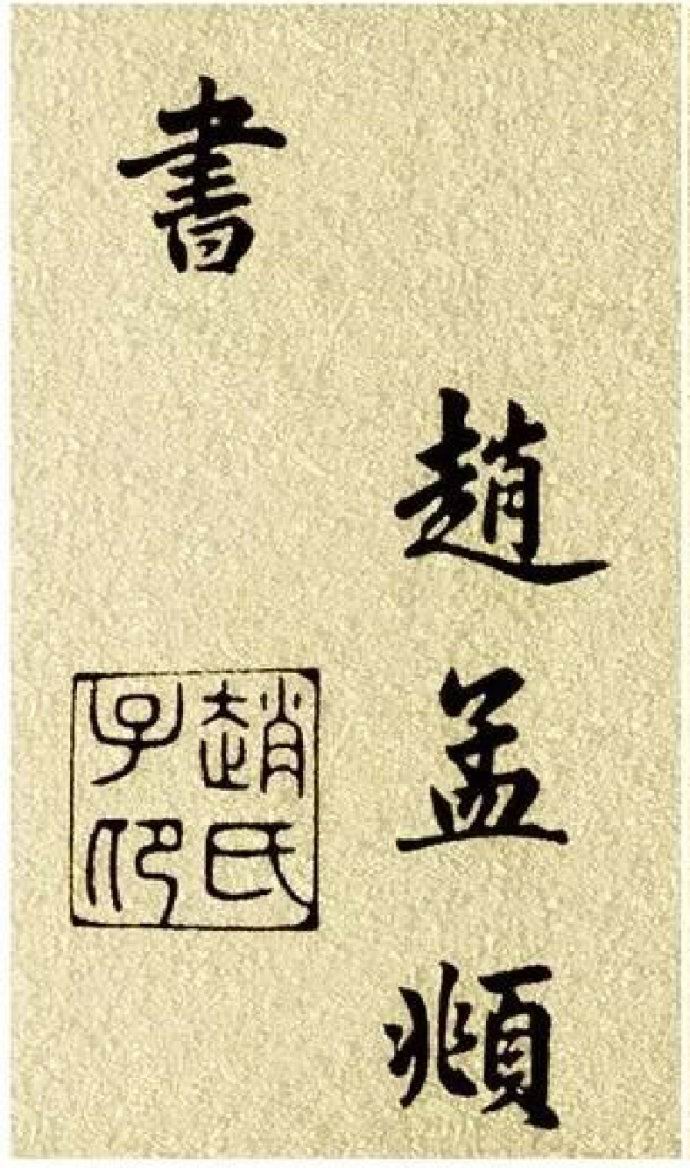 趙孟頫
書
趙氏
子卬